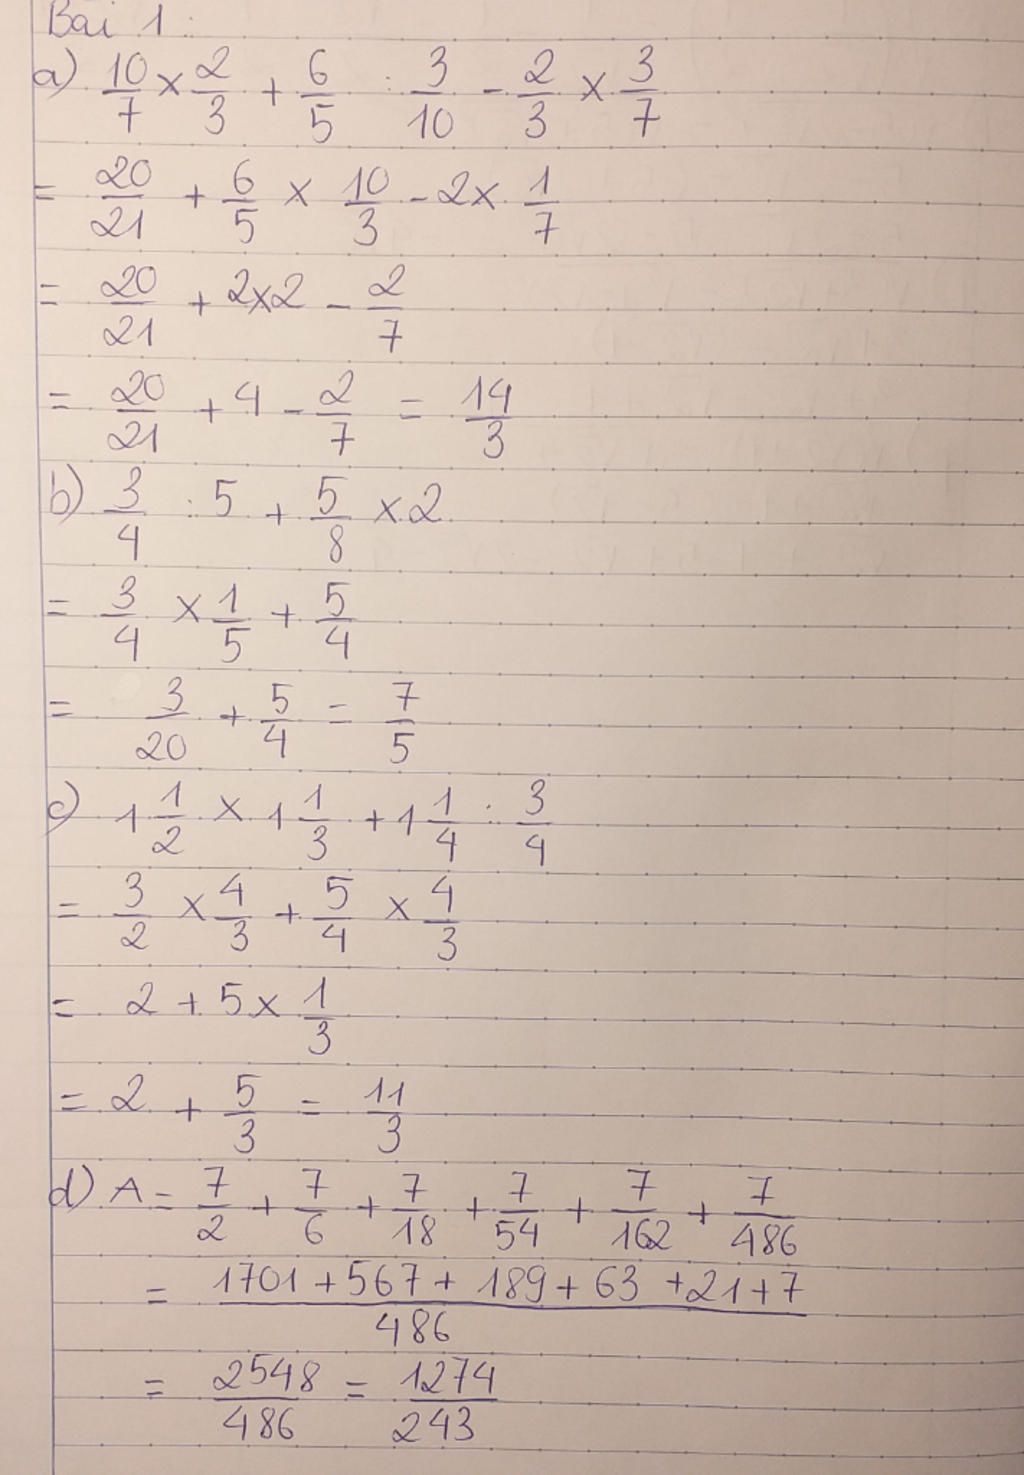 Bài 1:
a) 10/7 × 2/3 + 6/5 : 3/10 - 2/3 × 3/7
= 20/21 + 6/5 × 10/3 - 2 × 1/7
= 20/21 + 2×2 - 2/7
= 20/21 + 4 - 2/7 = 14/3
b) 3/4 : 5 + 5/8 × 2
= 3/4 × 1/5 + 5/4
= 3/20 + 5/4 = 7/5
c) 1 1/2 × 1 1/3 + 1 1/4 : 3/4
= 3/2 × 4/3 + 5/4 × 4/3
= 2 + 5 × 1/3
= 2 + 5/3 = 11/3
d) A = 7/2 + 7/6 + 7/18 + 7/54 + 7/162 + 7/486
= (1701 + 567 + 189 + 63 + 21 + 7)/486
= 2548/486 = 1274/243